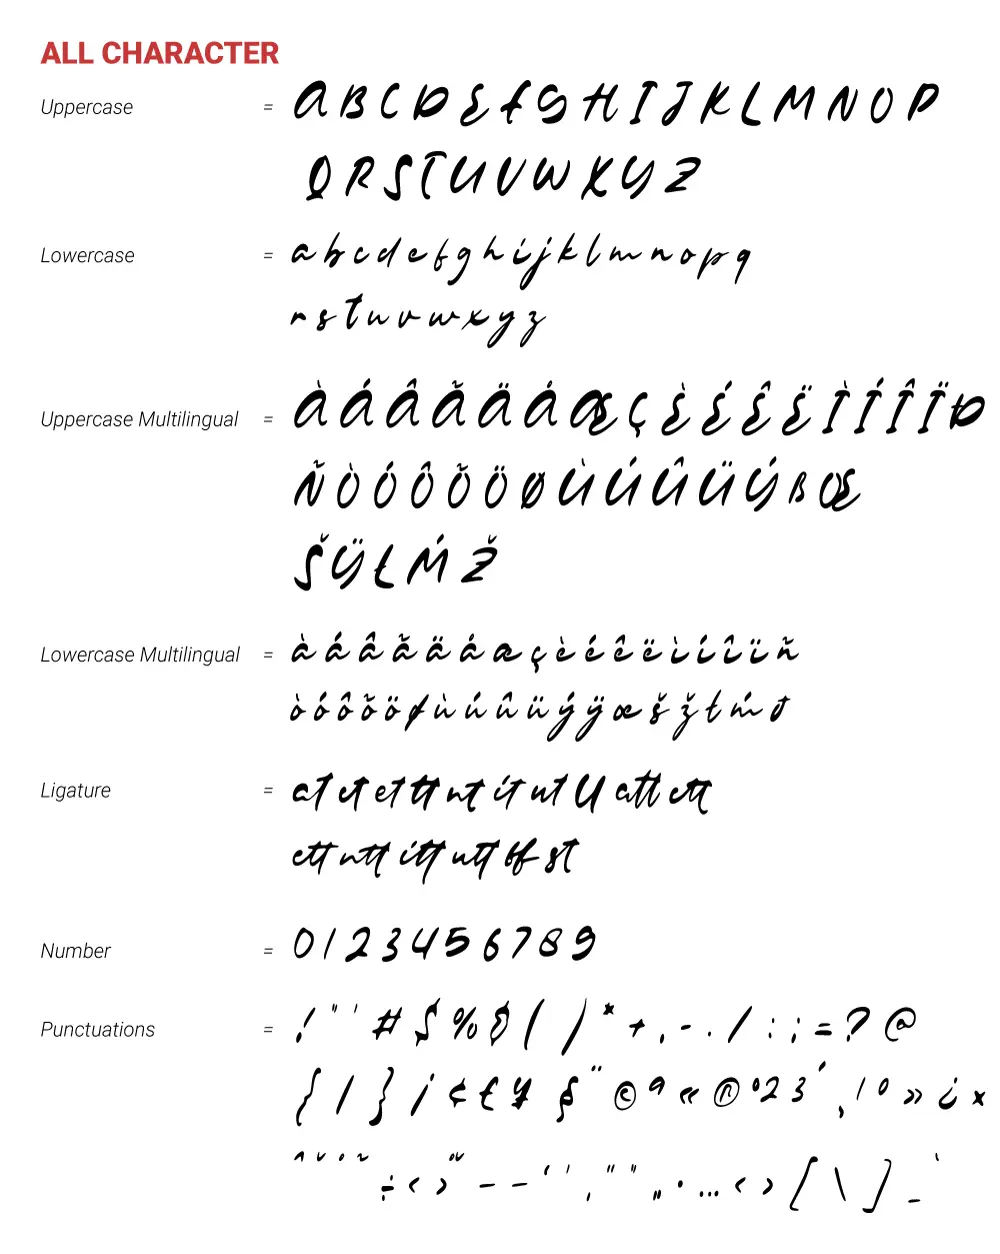 ALL CHARACTER
Uppercase = A B C D E F G H I J K L M N O P
Q R S T U V W X Y Z
Lowercase = a b c d e f g h i j k l m n o p q
r s t u v w x y z
Uppercase Multilingual = À Á Â Ã Ä Å Æ Ç È É Ê Ë Ì Í Î Ï Ð
Ñ Ò Ó Ô Õ Ö Ø Ù Ú Û Ü Ý ß Œ
Š Ÿ Ł Ḿ Ž
Lowercase Multilingual = à á â ã ä å æ ç è é ê ë ì í î ï ñ
ò ó ô õ ö ø ù ú û ü ý ÿ œ š ž ł ḿ
Ligature = at ct et tt nt it ut ll att ctt
ett ntt itt utt ff st
Number = 0 1 2 3 4 5 6 7 8 9
Punctuations = ! " ' # $ % & ( ) * + , - . / : ; = ? @
{ | } ¡ ¢ £ ¥ § ¨ © ª « ® ° ² ³ ´ ¸ ¹ º » ¿ ×
ˆ ˇ ˚ ˜ ÷ ‹ › – — ‘ ’ ‚ “ ” „ • … < > [ \ ] _ `